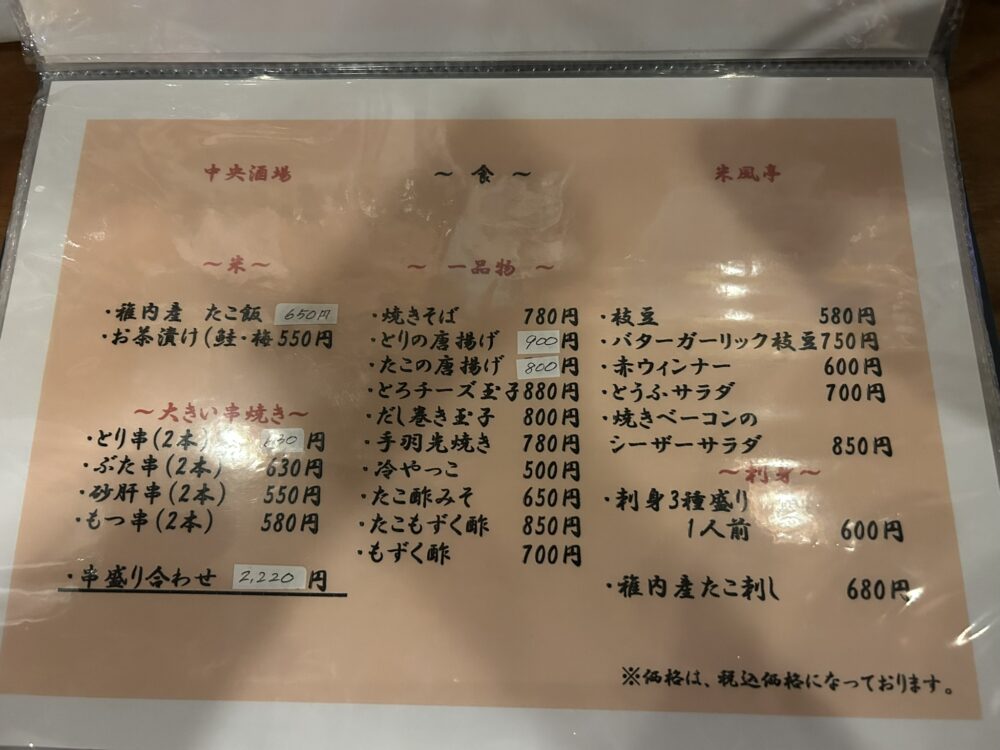 中央酒場 ～ 食 ～ 米風亭
～米～
・稚内産 たこ飯 650円
・お茶漬け(鮭・梅 550円
～大きい串焼き～
・とり串(2本) 630円
・ぶた串(2本) 630円
・砂肝串(2本) 550円
・もつ串(2本) 580円
・串盛り合わせ 2,220円
～ 一品物 ～
・焼きそば 780円
・とりの唐揚げ 900円
・たこの唐揚げ 800円
・とろチーズ玉子 880円
・だし巻き玉子 800円
・手羽先焼き 780円
・冷やっこ 500円
・たこ酢みそ 650円
・たこもずく酢 850円
・もずく酢 700円
・枝豆 580円
・バターガーリック枝豆 750円
・赤ウィンナー 600円
・とうふサラダ 700円
・焼きベーコンの
シーザーサラダ 850円
～刺身～
・刺身3種盛り
1人前 600円
・稚内産たこ刺し 680円
※価格は、税込価格になっております。